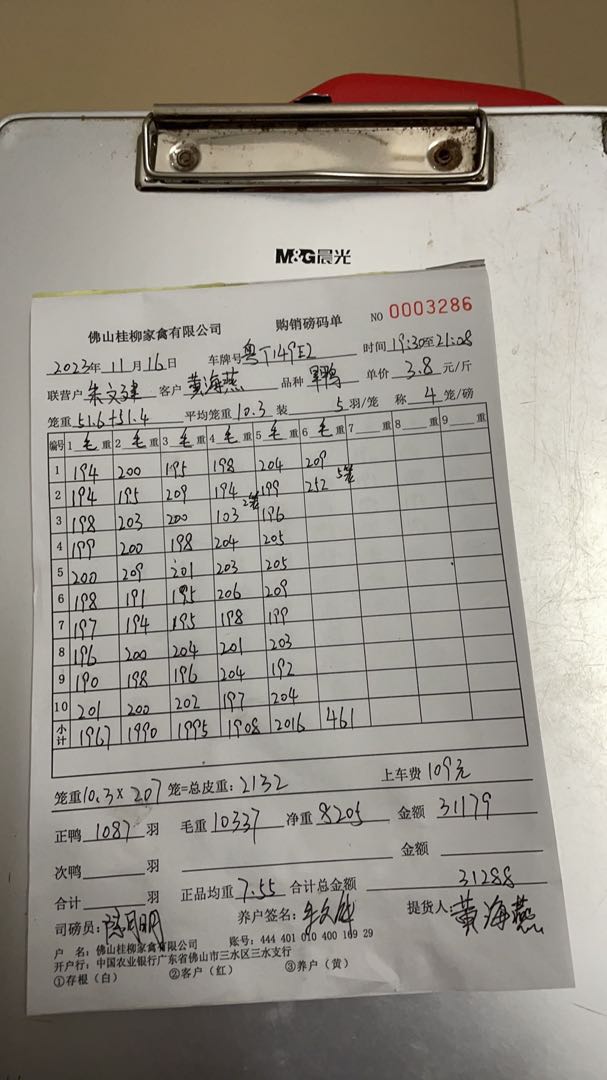 M&G晨光
佛山桂柳家禽有限公司 购销磅码单 NO 0003286
2023年 11月16日 车牌号 粤T149E2 时间 19:30至21:08
联营户 朱文建 客户 黄海燕 品种 单价 3.8 元/斤
笼重 51.6+51.4 平均笼重 10.3 装 5 羽/笼 称 4 笼/磅
编号 1 毛 重 2 毛 重 3 毛 重 4 毛 重 5 毛 重 6 毛 重 7 重 8 重 9 重
1 194 200 195 198 204 209
2 194 195 209 194 199 252 5笼
3 198 203 200 103 2笼 196
4 199 200 198 204 205
5 200 209 201 203 205
6 198 191 195 206 209
7 197 194 195 198 199
8 196 200 204 201 203
9 190 198 196 204 192
10 201 200 202 197 204
小计 1967 1990 1995 1908 2016 461
笼重10.3×207 笼=总皮重：2132 上车费 109元
正鸭 1087 羽 毛重 10337 净重 8205 金额 31179
次鸭 羽 金额
合计 羽 正品均重 7.55 合计总金额 31288
司磅员： 养户签名： 提货人：黄海燕
户 名：佛山桂柳家禽有限公司 账号：444 401 010 400 169 29
开户行：中国农业银行广东省佛山市三水区三水支行
①存根（白） ②客户（红） ③养户（黄）